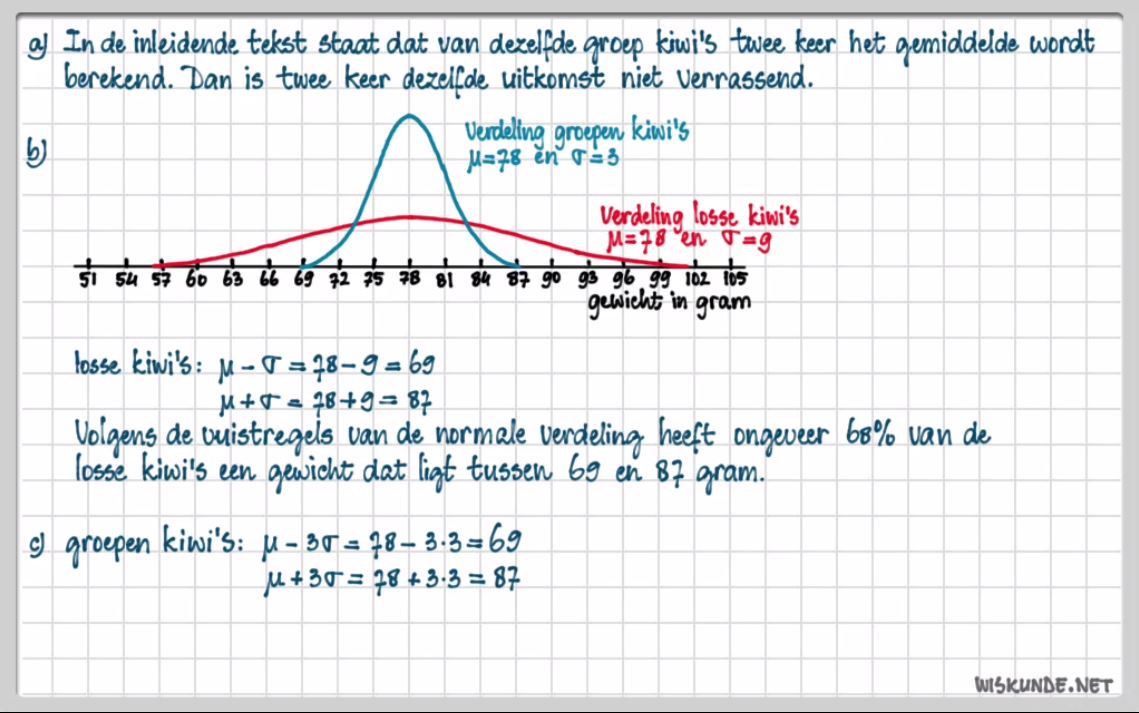 a) In de inleidende tekst staat dat van dezelfde groep kiwi's twee keer het gemiddelde wordt
berekend. Dan is twee keer dezelfde uitkomst niet verrassend.
b)
Verdeling groepen kiwi's
μ=78 en σ=3
Verdeling losse kiwi's
μ=78 en σ=9
51 54 57 60 63 66 69 72 75 78 81 84 87 90 93 96 99 102 105
gewicht in gram
losse kiwi's: μ - σ = 78 - 9 = 69
μ + σ = 78 + 9 = 87
Volgens de vuistregels van de normale verdeling heeft ongeveer 68% van de
losse kiwi's een gewicht dat ligt tussen 69 en 87 gram.
c) groepen kiwi's: μ - 3σ = 78 - 3·3 = 69
μ + 3σ = 78 + 3·3 = 87
WISKUNDE.NET